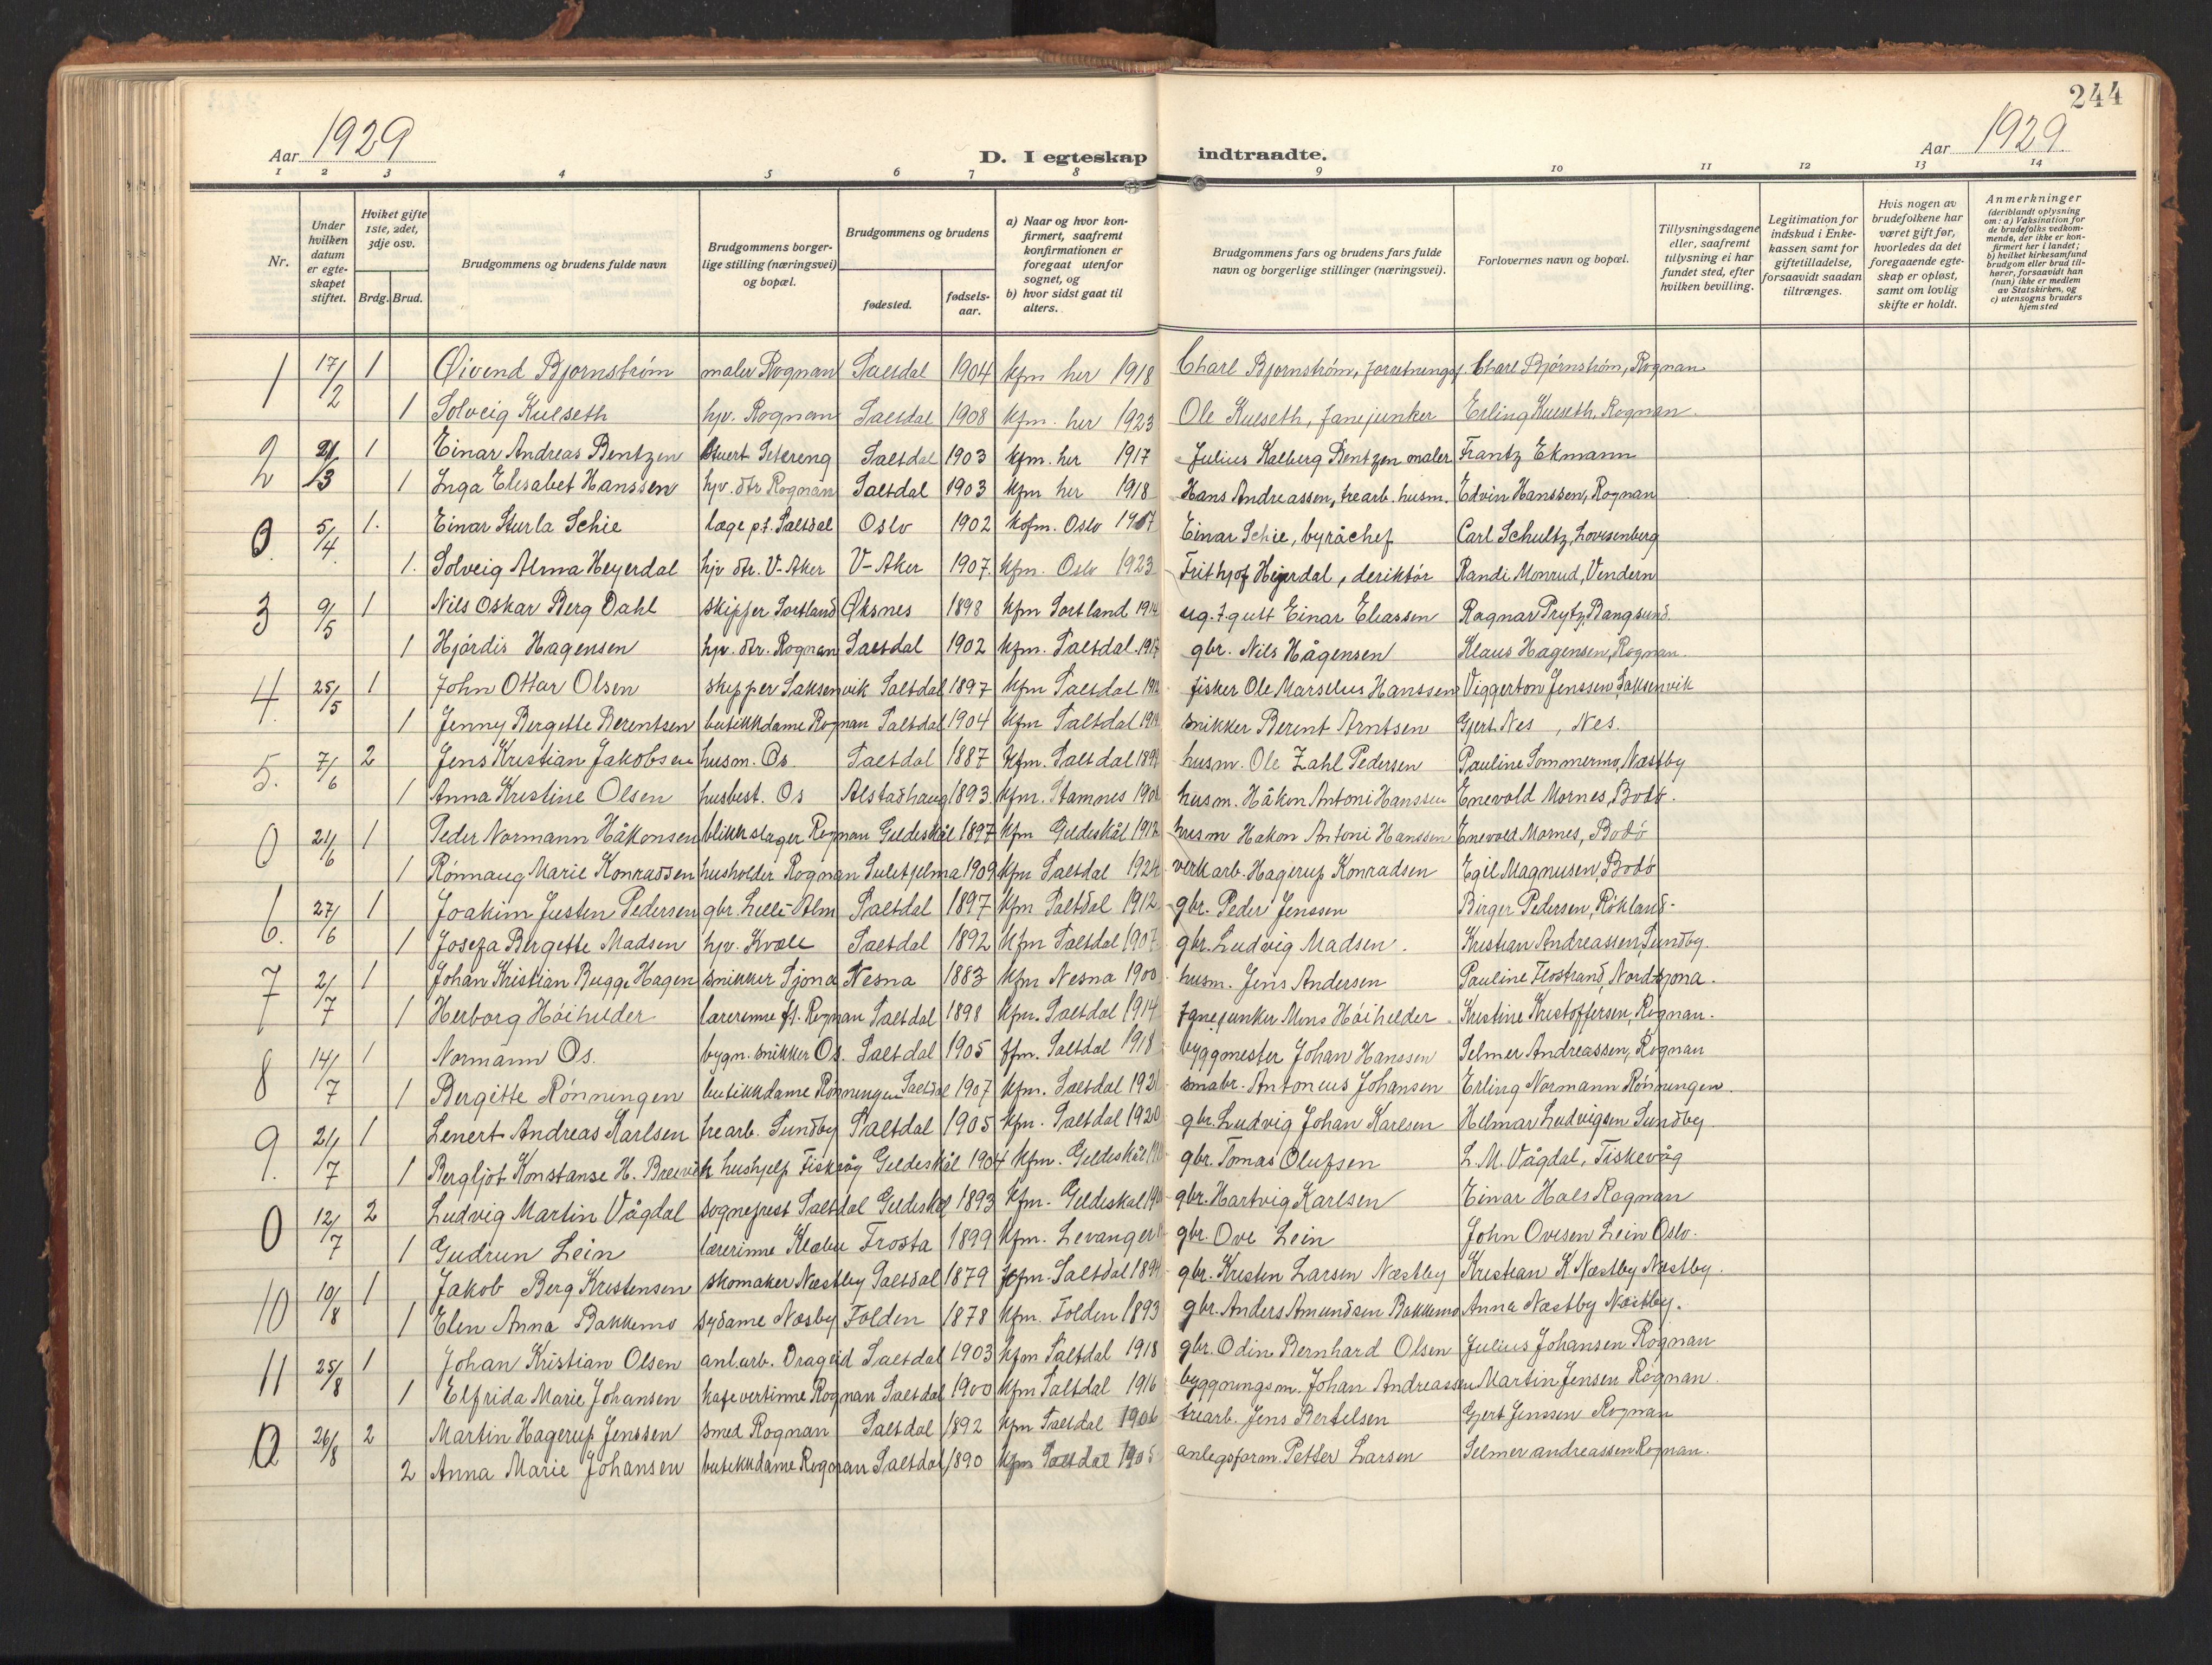 244
Aar 1929
D. I egteskap indtraadte.
Aar 1929
1 2 3 4 5 6 7 8 9 10 11 12 13 14
Nr.
Under hvilken datum er egteskapet stiftet.
Hviket gifte 1ste, 2det, 3dje osv.
Brdg. Brud.
Brudgommens og brudens fulde navn
Brudgommens borgerlige stilling (næringsvei) og bopæl.
Brudgommens og brudens
fødested.
fødselsaar.
a) Naar og hvor konfirmert, saafremt konfirmationen er foregaat utenfor sognet, og
b) hvor sidst gaat til alters.
Brudgommens fars og brudens fars fulde navn og borgerlige stillinger (næringsvei).
Forlovernes navn og bopæl.
Tillysningsdagene eller, saafremt tillysning ei har fundet sted, efter hvilken bevilling.
Legitimation for indskud i Enkekassen samt for giftetilladelse, forsaavidt saadan tiltrænges.
Hvis nogen av brudefolkene har været gift før, hvorledes da det foregaaende egteskap er opløst, samt om lovlig skifte er holdt.
Anmerkninger (deriblandt oplysning om: a) Vaksination for de brudefolks vedkommende, der ikke er konfirmert her i landet; b) hvilket kirkesamfund brudgom eller brud tilhører, forsaavidt han (hun) ikke er medlem av Statskirken, og c) utensogns bruders hjemsted
1 17/2 1 Øivend Bjørnstrøm maler Rognan Saltdal 1904 kfm her 1918 Charl Bjørnstrøm, forretningsf. Charl Bjørnstrøm, Rognan
1 Solveig Kulseth hjv. Rognan Saltdal 1908 kfm. her 1923 Ole Kulseth, fanejunker Erling Kulseth, Rognan.
2 21/3 1 Einar Andreas Bentzen Stuert Setereng Saltdal 1903 kfm. her 1917 Julius Kalberg Bentzen maler Frantz Ekmann
1 Inga Elisabet Hanssen hjv. dtr Rognan Saltdal 1903 kfm her 1918 Hans Andreassen, trearb. husm. Edvin Hanssen, Rognan
0. 5/4. 1. Einar Sturla Schie læge p.t. Saltdal Oslo 1902 kofm. Oslo 1917 Einar Schie, byråchef Carl Schultz, Lovisenberg
1. Solveig Alma Heyerdal hjv dtr. V-Aker V-Aker 1907. kfm. Oslo 1923 Frithjof Heyerdal, deriktør Randi Monrud, Vendern
3 9/5 1 Nils Oskar Berg Dahl skipper Sortland Øksnes 1898 kfm Sortland 1914 ug. f. gutt Einar Eliassen Ragnar Prytz, Bangsund.
1 Hjørdis Hagensen hjv. dtr. Rognan Saltdal 1902 kfm. Saltdal. 1917 gbr. Nils Hågensen Klaus Hagensen, Rognan.
4. 25/5 1 John Ottar Olsen skipper Saksenvik Saltdal 1897 kfm Saltdal 1912 fisker Ole Marselius Hanssen Viggerton Jenssen, Saksenvik
1 Jenny Bergette Berentsen butikkdame Rognan Saltdal 1904 kfm Saltdal 1919 snikker Berent Arntsen Gjert Nes , Nes.
5. 7/6 2 Jens Kristian Jakobsen husm. Os Saltdal 1887 kfm. Saltdal husm. Ole Zahl Pedersen Pauline Sommermo, Næstby
1 Anna Kristine Olsen husbest. Os Alstadhaug 1893. kfm. Stamnes 1908 husm. Håkon Antoni Hanssen Enevold Mornes, Bodø.
0 21/6 1 Peder Normann Håkonsen blikkslager Rognan Gildeskål 1897 kfm Gildeskål 1912 husm Hakon Antoni Hanssen Enevold Mornes, Bodø
1 Rønnaug Marie Konradsen husholder Rognan Sulitjelma 1909 kfm Saltdal 1924 verkarb. Hagerup Konradsen Egil Magnusen, Bodø
6. 27/6 1 Joakim Justen Pedersen gbr. Lille-Alm Saltdal 1897 kfm Saltdal 1912 gbr. Peder Jenssen Birger Pedersen, Røkland.
1 Josefa Bergette Madsen hjv. Kvæle Saltdal 1892 kfm Saltdal 1907 gbr. Ludvig Madsen. Kristian Andreassen, Sundby.
7 2/7 1 Johan Kristian Bugge Hagen snikker Sjona Nesna 1883 kfm Nesna 1900 husm. Jens Andersen Pauline Flostrand, Nordsjona.
1 Herborg Høihilder lærerinne ft. Rognan Saltdal 1898 kfm. Saltdal 1914 fanejunker Mons Høihilder. Kristine Kristoffersen, Rognan.
8 14/7 1 Normann Os. bygn. snikker Os. Saltdal 1905 kfm. Saltdal 1918 byggmester Johan Hanssen Selmer Andreassen, Rognan
1 Bergitte Rønningen butikkdame Rønningen Saltdal 1907 kfm. Saltdal 1921 småbr. Antonius Johansen Erling Normann Rønningen.
9. 21/7 1 Lenert Andreas Karlsen trearb. Sundby Saltdal 1905 kfm. Saltdal 1920 gbr. Ludvig Johan Karlsen Hilmar Ludvigsen Sundby.
1 Bergljot Konstanse H. Breivik hushjelp Fiskvåg Gildeskål 1904 kfm. Gildeskål gbr. Tomas Olufsen L. M. Vågdal, Fiskevåg
0 12/7 2 Ludvig Martin Vågdal sogneprest Saltdal Gildeskål 1893 kfm. Gildeskål gbr. Hartvig Karlsen Einar Hals Rognan
1 Gudrun Lein lærerinne Klæbu Frosta 1899 kfm. Levanger gbr. Ove Lein John Ovesen Lein Oslo.
10 10/8 1 Jakob Berg Kristensen skomaker Næstby Saltdal 1879 kfm. Saltdal 1894 gbr. Kristen Larsen Næstby Kristian K Næstby Næstby.
1 Elen Anna Bakkemo sydame Næsby Folden 1878 kfm. Folden 1893 gbr. Anders Amundsen Bakkemo Anna Næstby Næstby.
11 25/8 1 Johan Kristian Olsen anl.arb. Drageid Saltdal 1903 kfm Saltdal 1918 gbr. Odin Bernhard Olsen Julius Johansen Rognan
1 Elfrida Marie Johansen kafevertinne Rognan Saltdal 1900 kfm Saltdal 1916 byggningsm. Johan Andreassen Martin Jensen Rognan.
0 26/8 2 Martin Hagerup Jenssen smed Rognan Saltdal 1892 kfm Saltdal 1906 trearb. Jens Bertelsen Gjert Jenssen Rognan
2 Anna Marie Johansen butikkdame Rognan Saltdal 1890 kfm Saltdal 1905 anlegsform. Petter Larsen Selmer andreassen Rognan.